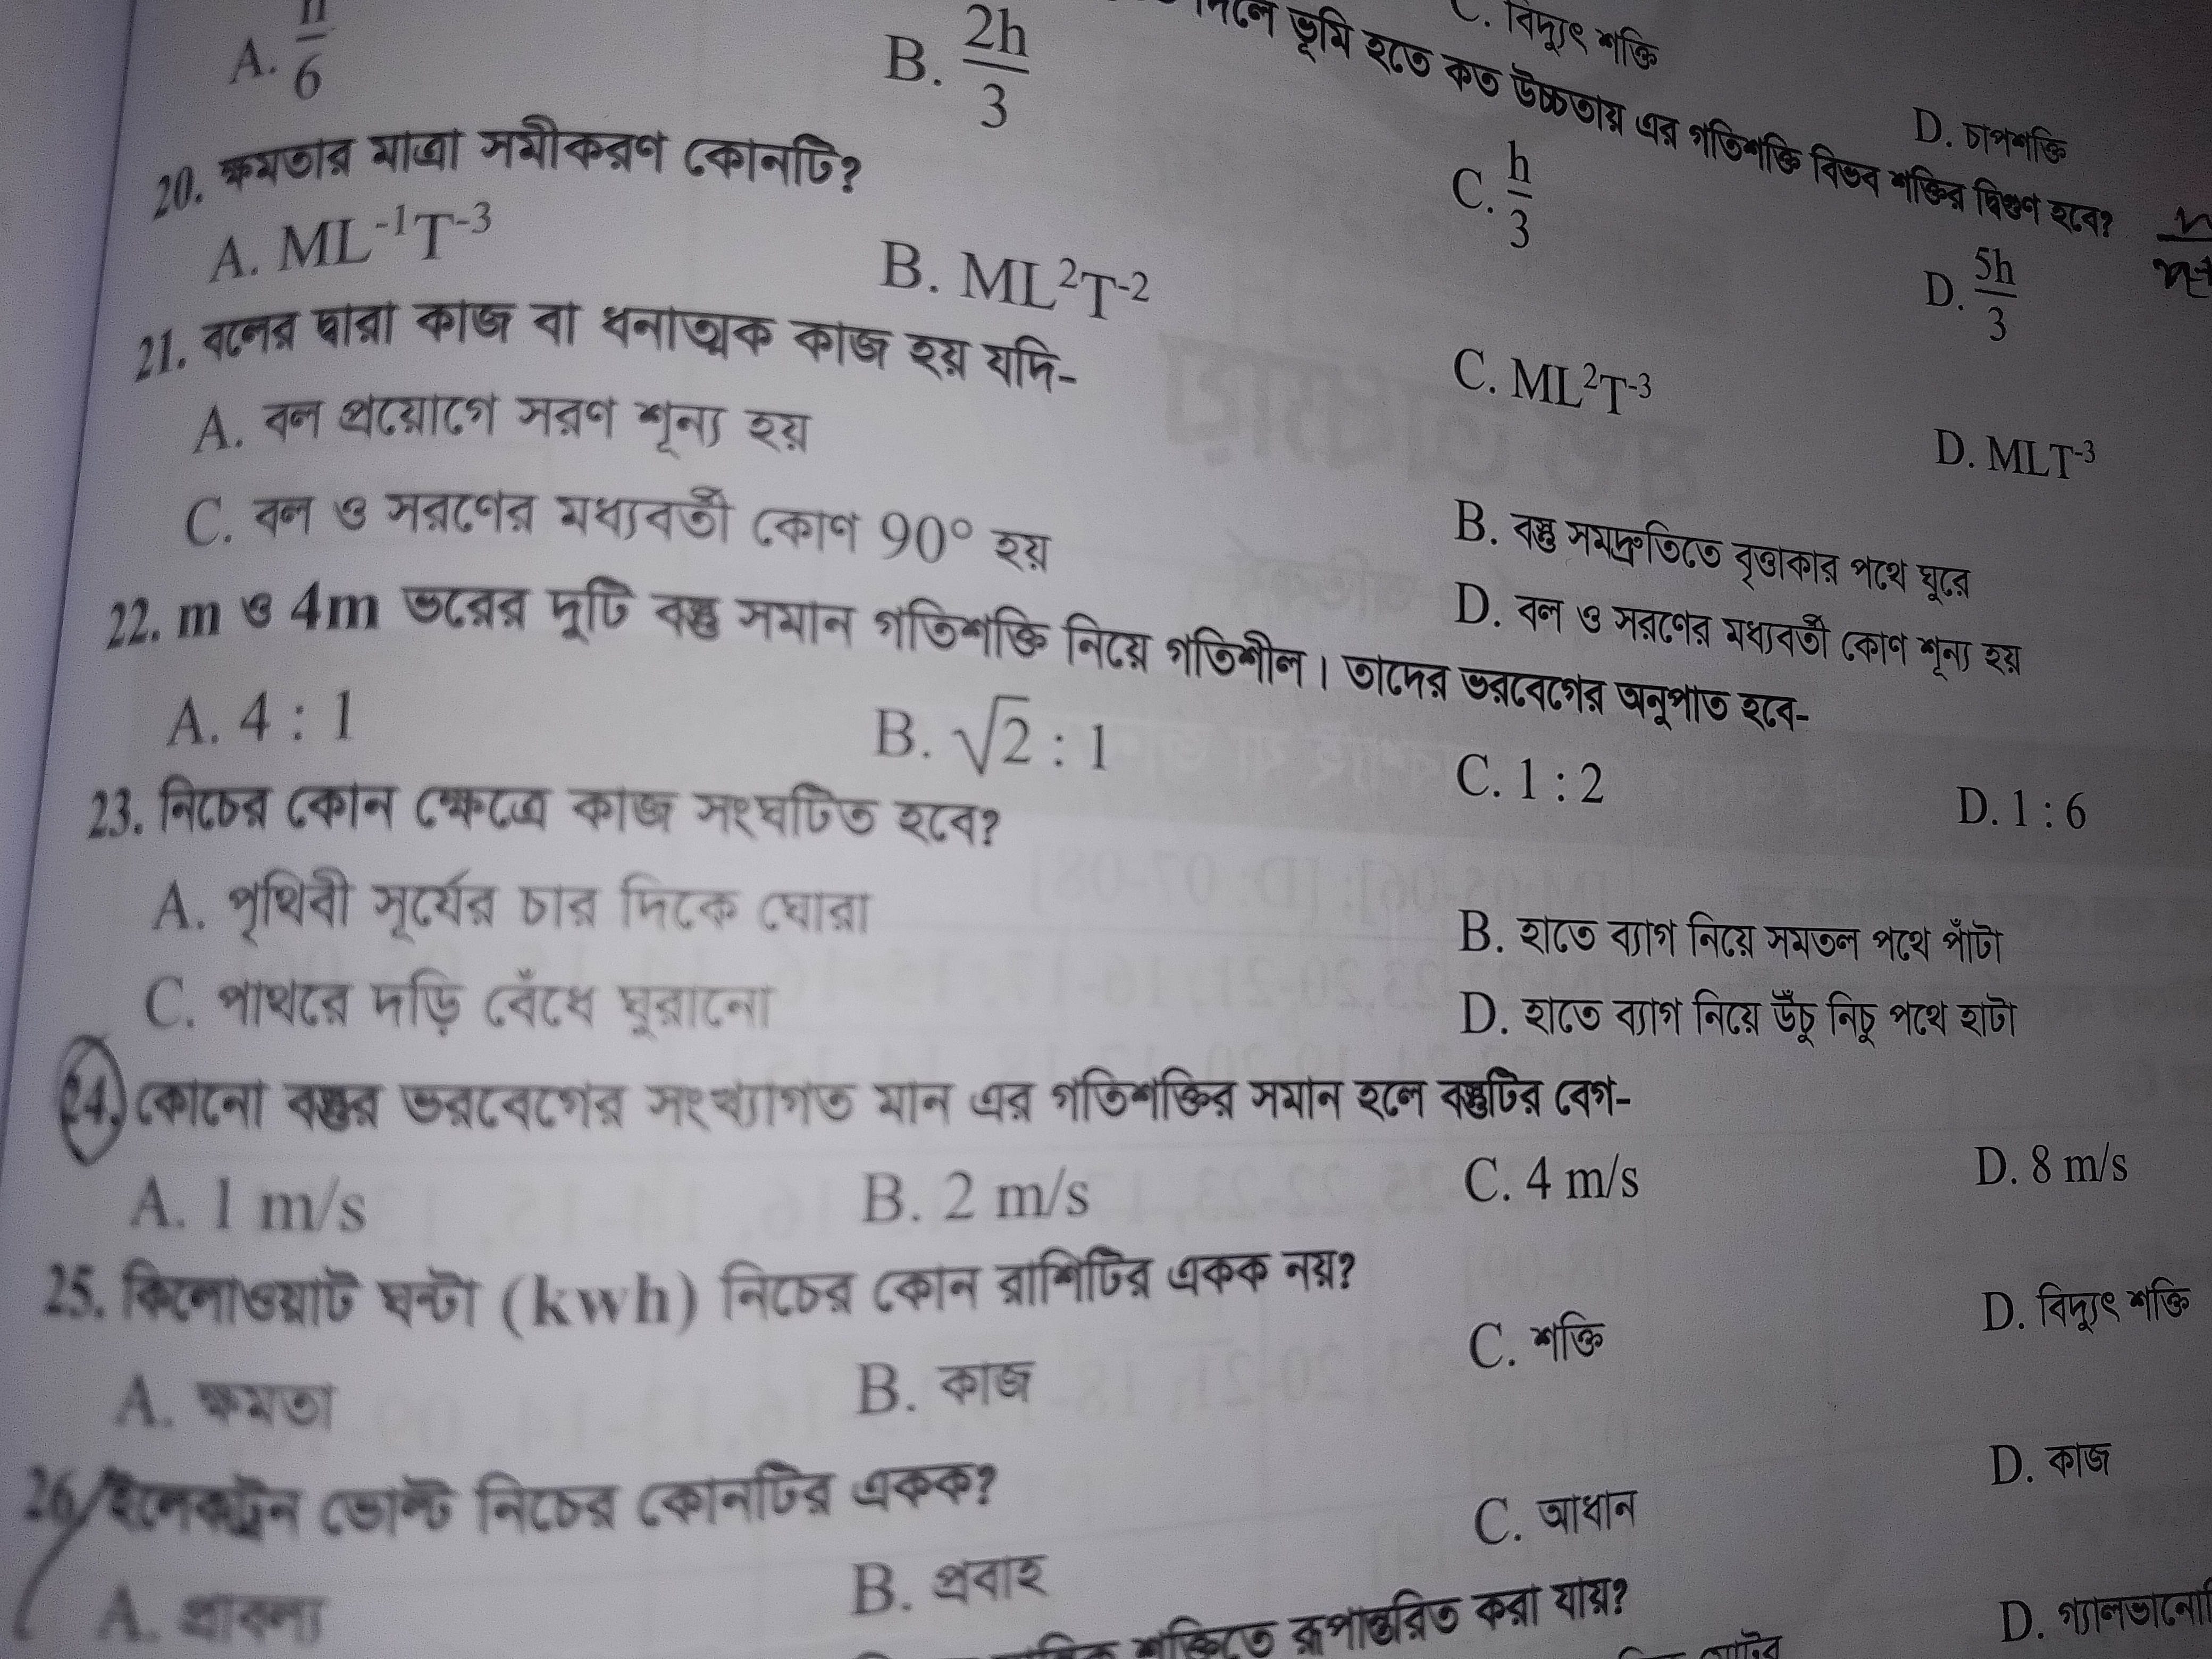 C. বিদ্যুৎ শক্তি D. চাপশক্তি
দিলে ভূমি হতে কত উচ্চতায় এর গতিশক্তি বিভব শক্তির দ্বিগুণ হবে?
A. h/6 B. 2h/3 C. h/3 D. 5h/3
20. ক্ষমতার মাত্রা সমীকরণ কোনটি?
A. ML⁻¹T⁻³ B. ML²T⁻² C. ML²T⁻³ D. MLT⁻³
21. বলের দ্বারা কাজ বা ধনাত্মক কাজ হয় যদি-
A. বল প্রয়োগে সরণ শূন্য হয় B. বস্তু সমদ্রুতিতে বৃত্তাকার পথে ঘুরে
C. বল ও সরণের মধ্যবর্তী কোণ 90° হয় D. বল ও সরণের মধ্যবর্তী কোণ শূন্য হয়
22. m ও 4m ভরের দুটি বস্তু সমান গতিশক্তি নিয়ে গতিশীল। তাদের ভরবেগের অনুপাত হবে-
A. 4 : 1 B. √2 : 1 C. 1 : 2 D. 1 : 6
23. নিচের কোন ক্ষেত্রে কাজ সংঘটিত হবে?
A. পৃথিবী সূর্যের চার দিকে ঘোরা B. হাতে ব্যাগ নিয়ে সমতল পথে পাঁটা
C. পাথরে দড়ি বেঁধে ঘুরানো D. হাতে ব্যাগ নিয়ে উঁচু নিচু পথে হাটা
24. কোনো বস্তুর ভরবেগের সংখ্যাগত মান এর গতিশক্তির সমান হলে বস্তুটির বেগ-
A. 1 m/s B. 2 m/s C. 4 m/s D. 8 m/s
25. কিলোওয়াট ঘন্টা (kwh) নিচের কোন রাশিটির একক নয়?
A. ক্ষমতা B. কাজ C. শক্তি D. বিদ্যুৎ শক্তি
26. ইলেকট্রন ভোল্ট নিচের কোনটির একক?
A. প্রাবল্য B. প্রবাহ C. আধান D. কাজ
শক্তিতে রূপান্তরিত করা যায়?
D.